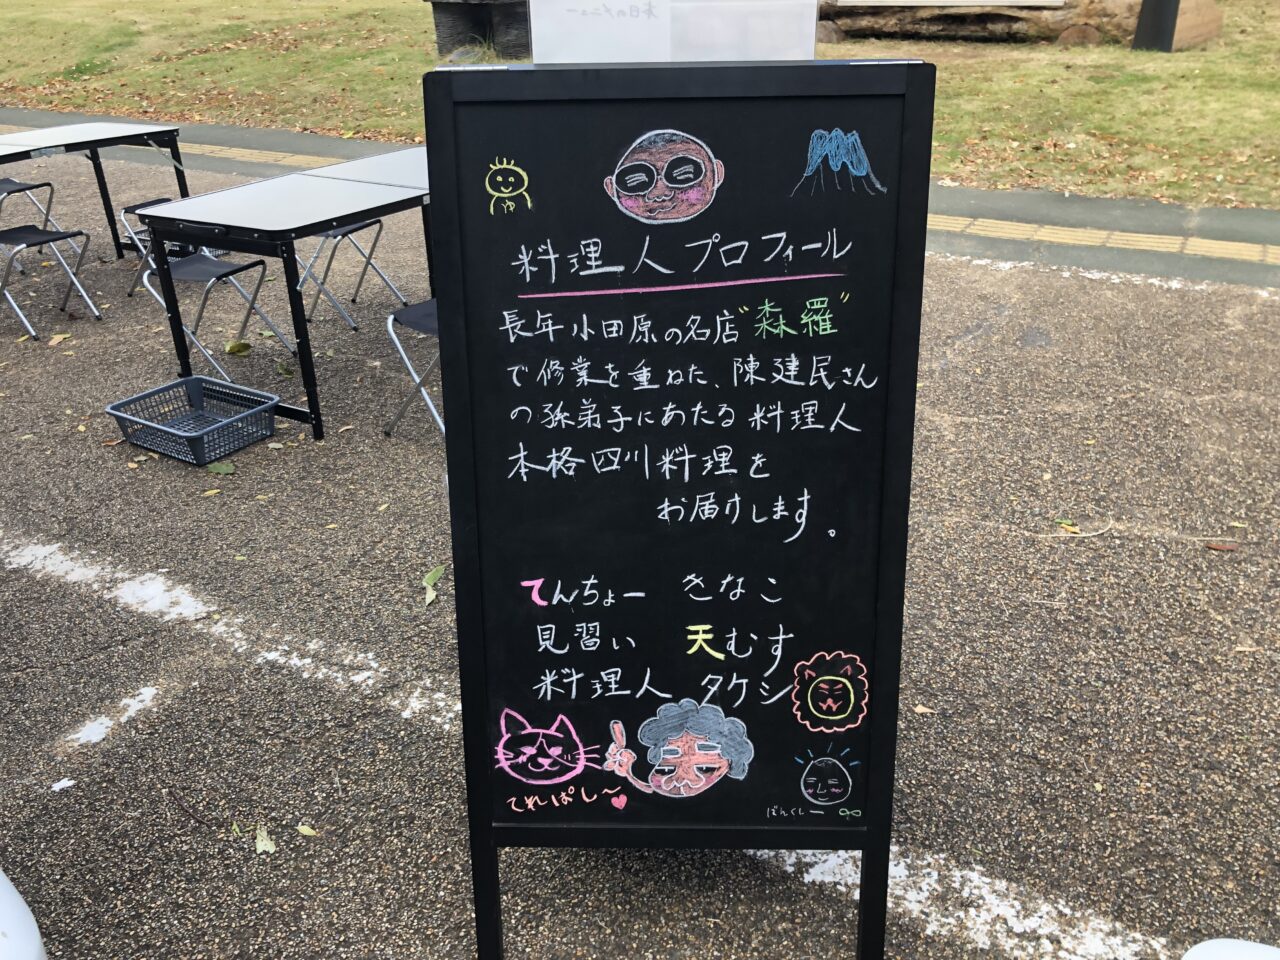 本日のメニュー
ゆ
料理人プロフィール
長年小田原の名店"森羅"
で修業を重ねた、陳建民さん
の孫弟子にあたる料理人
本格四川料理を
お届けします。
てんちょー きなこ
見習い 天むす
料理人 タケシ
てれぱし〜
ばんくしー